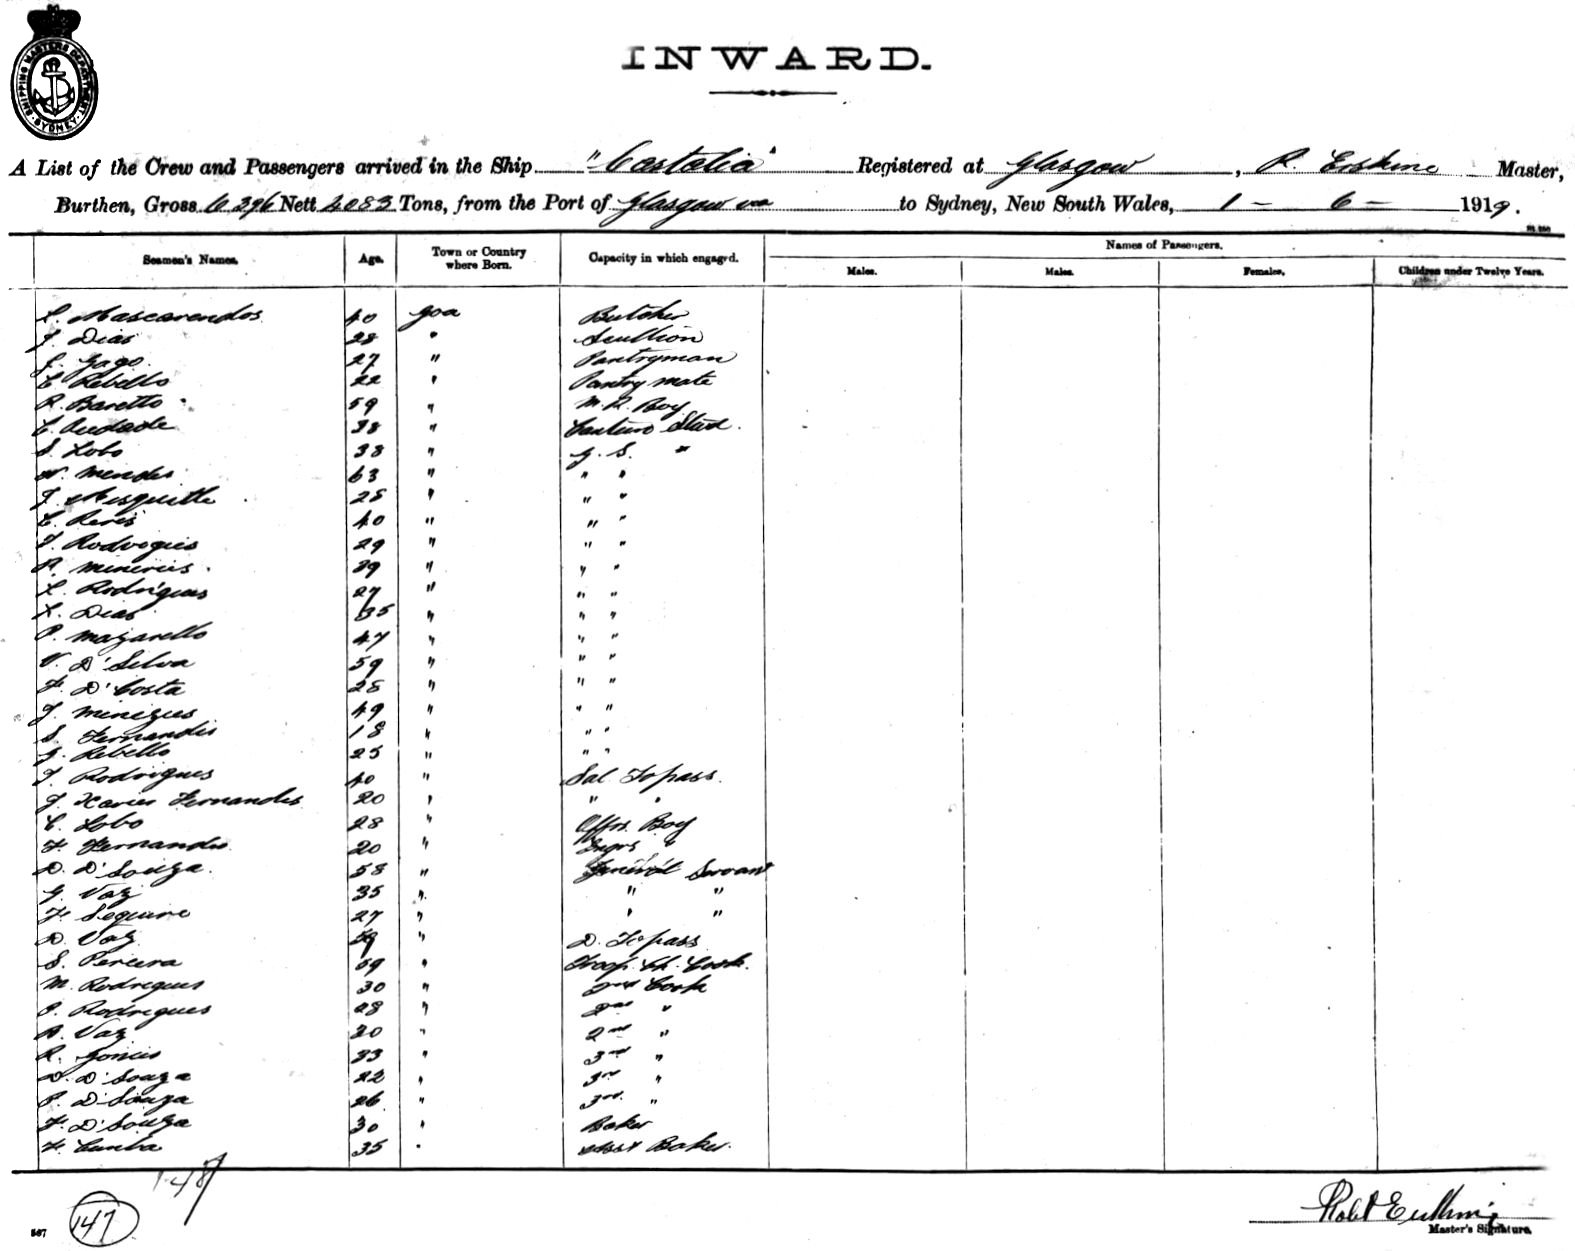 SHIPPING MASTERS DEPARTMENT SYDNEY
INWARD.
A List of the Crew and Passengers arrived in the Ship "Castalia" Registered at Glasgow, R. Erskine Master,
Burthen, Gross 6396 Nett 4083 Tons, from the Port of Glasgow via to Sydney, New South Wales, 1 - 6 - 1919.
Seamen's Names. Age. Town or Country where Born. Capacity in which engaged. Names of Passengers.
Males. Males. Females. Children under Twelve Years.
L. Mascarenhos 40 Goa Butcher
J. Dias 28 " Scullion
J. Gago 27 " Pantryman
C. Rebello 22 " Pantry mate
R. Baretto 59 " M. R. Boy
C. Andade 38 " Canteen Stwd.
S. Lobo 38 " G. S. "
W. Mendes 63 " " "
J. Mesquitta 28 " " "
C. 40 " " "
J. Rodrigues 29 " " "
R. 39 " " "
L. Rodrigues 27 " " "
L. Dias 35 " " "
P. Mazarello 47 " " "
V. D'Silva 59 " " "
F. D'Costa 28 " " "
J. Minezes 49 " " "
S. Fernandis 18 " " "
J. Rebello 25 " " "
J. Rodrigues 40 " Sal Topass.
J. Xavier Fernandes 20 " " "
C. Lobo 28 " Offrs. Boy
F. Fernandes 20 " Engrs "
D. D'Souza. 58 " General Servant
G. Vaz 35 " " "
F. Sequira 27 " " "
D. Vaz " D. Topass
S. Pereira 59 " Troop Ch. Cook.
M. Rodrigues 30 " 2nd Cook
P. Rodrigues 28 " 2nd "
A. Vaz 30 " 2nd "
R. Gomes 33 " 3rd "
D. D'Souza 22 " 3rd "
P. D'Souza 26 " 3rd "
F. D'Souza 30 " Baker
F. Cunha 35 " Asst Baker.
147
147
Robt Erskine
Master's Signature.